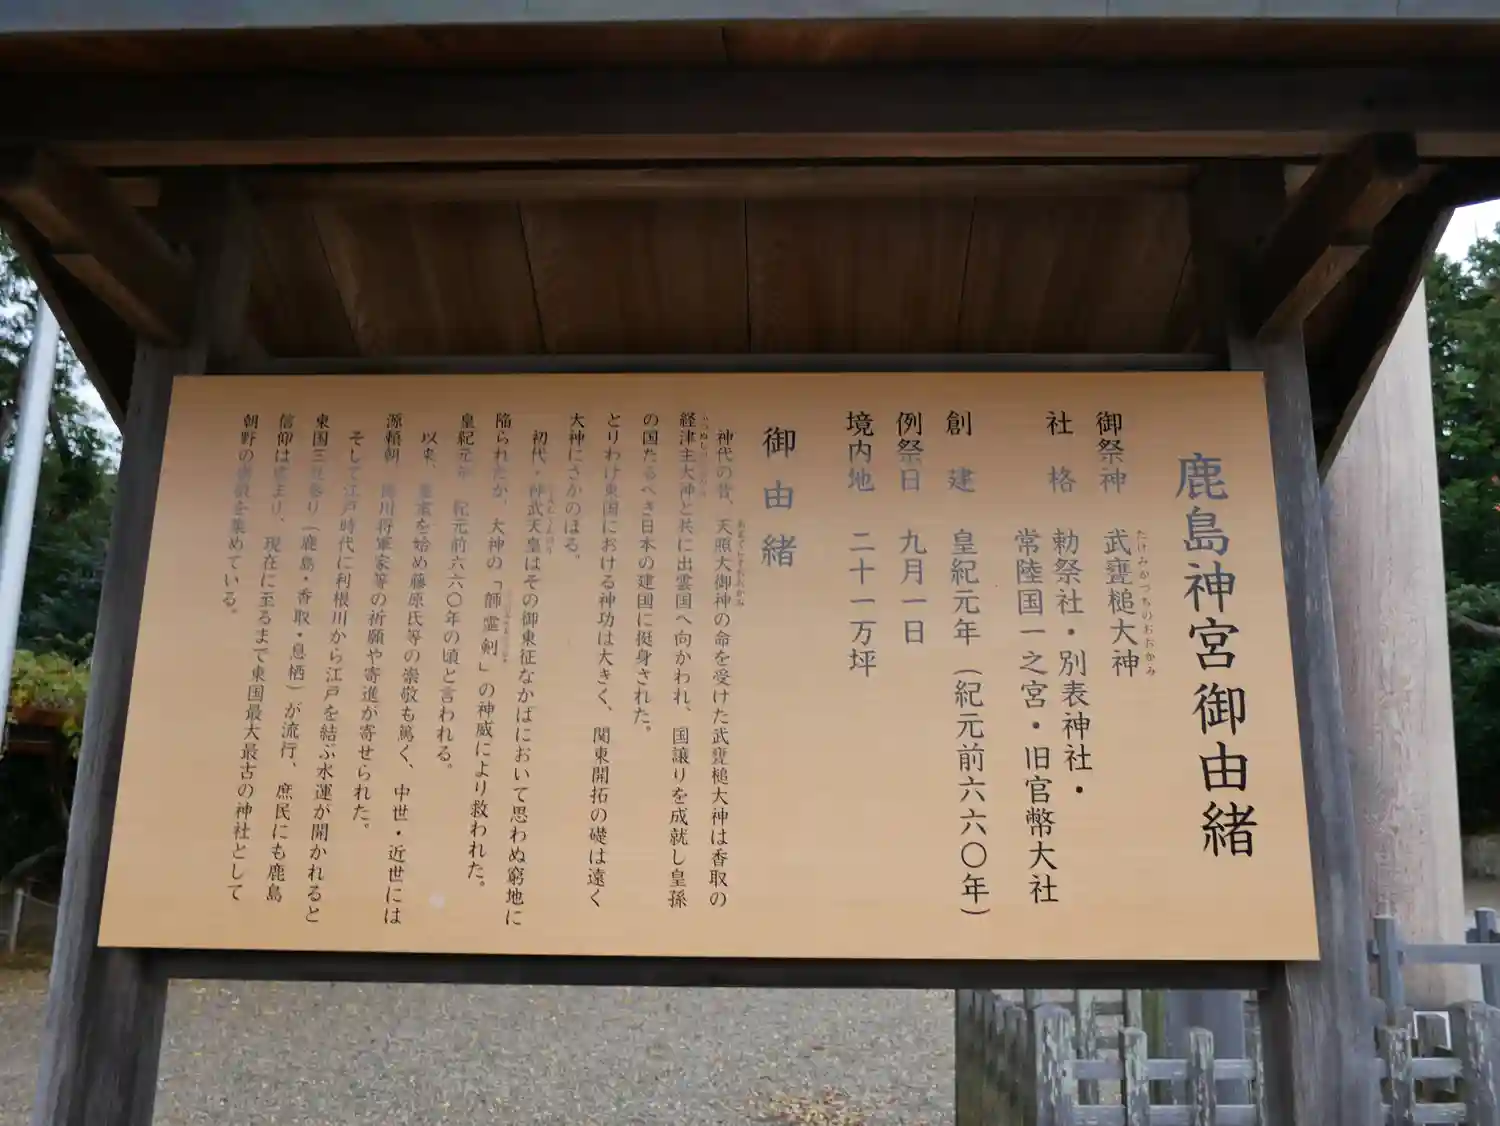 鹿島神宮御由緒
御祭神　武甕槌大神
たけみかづちのおおかみ
社　格　勅祭社・別表神社・
常陸国一之宮・旧官幣大社
創　建　皇紀元年（紀元前六六〇年）
例祭日　九月一日
境内地　二十一万坪
御由緒
神代の昔、天照大御神の命を受けた武甕槌大神は香取の
経津主大神と共に出雲国へ向かわれ、国譲りを成就し皇孫
の国たるべき日本の建国に挺身された。
とりわけ東国における神功は大きく、関東開拓の礎は遠く
大神にさかのぼる。
初代・神武天皇はその御東征なかばにおいて思わぬ窮地に
陥られたが、大神の「韴霊剣」の神威により救われた。
皇紀元年　紀元前六六〇年の頃と言われる。
以来、皇室を始め藤原氏等の崇敬も篤く、中世・近世には
源頼朝、徳川将軍家等の祈願や寄進が寄せられた。
そして江戸時代に利根川から江戸を結ぶ水運が開かれると
東国三社参り（鹿島・香取・息栖）が流行、庶民にも鹿島
信仰は広まり、現在に至るまで東国最大最古の神社として
朝野の崇敬を集めている。